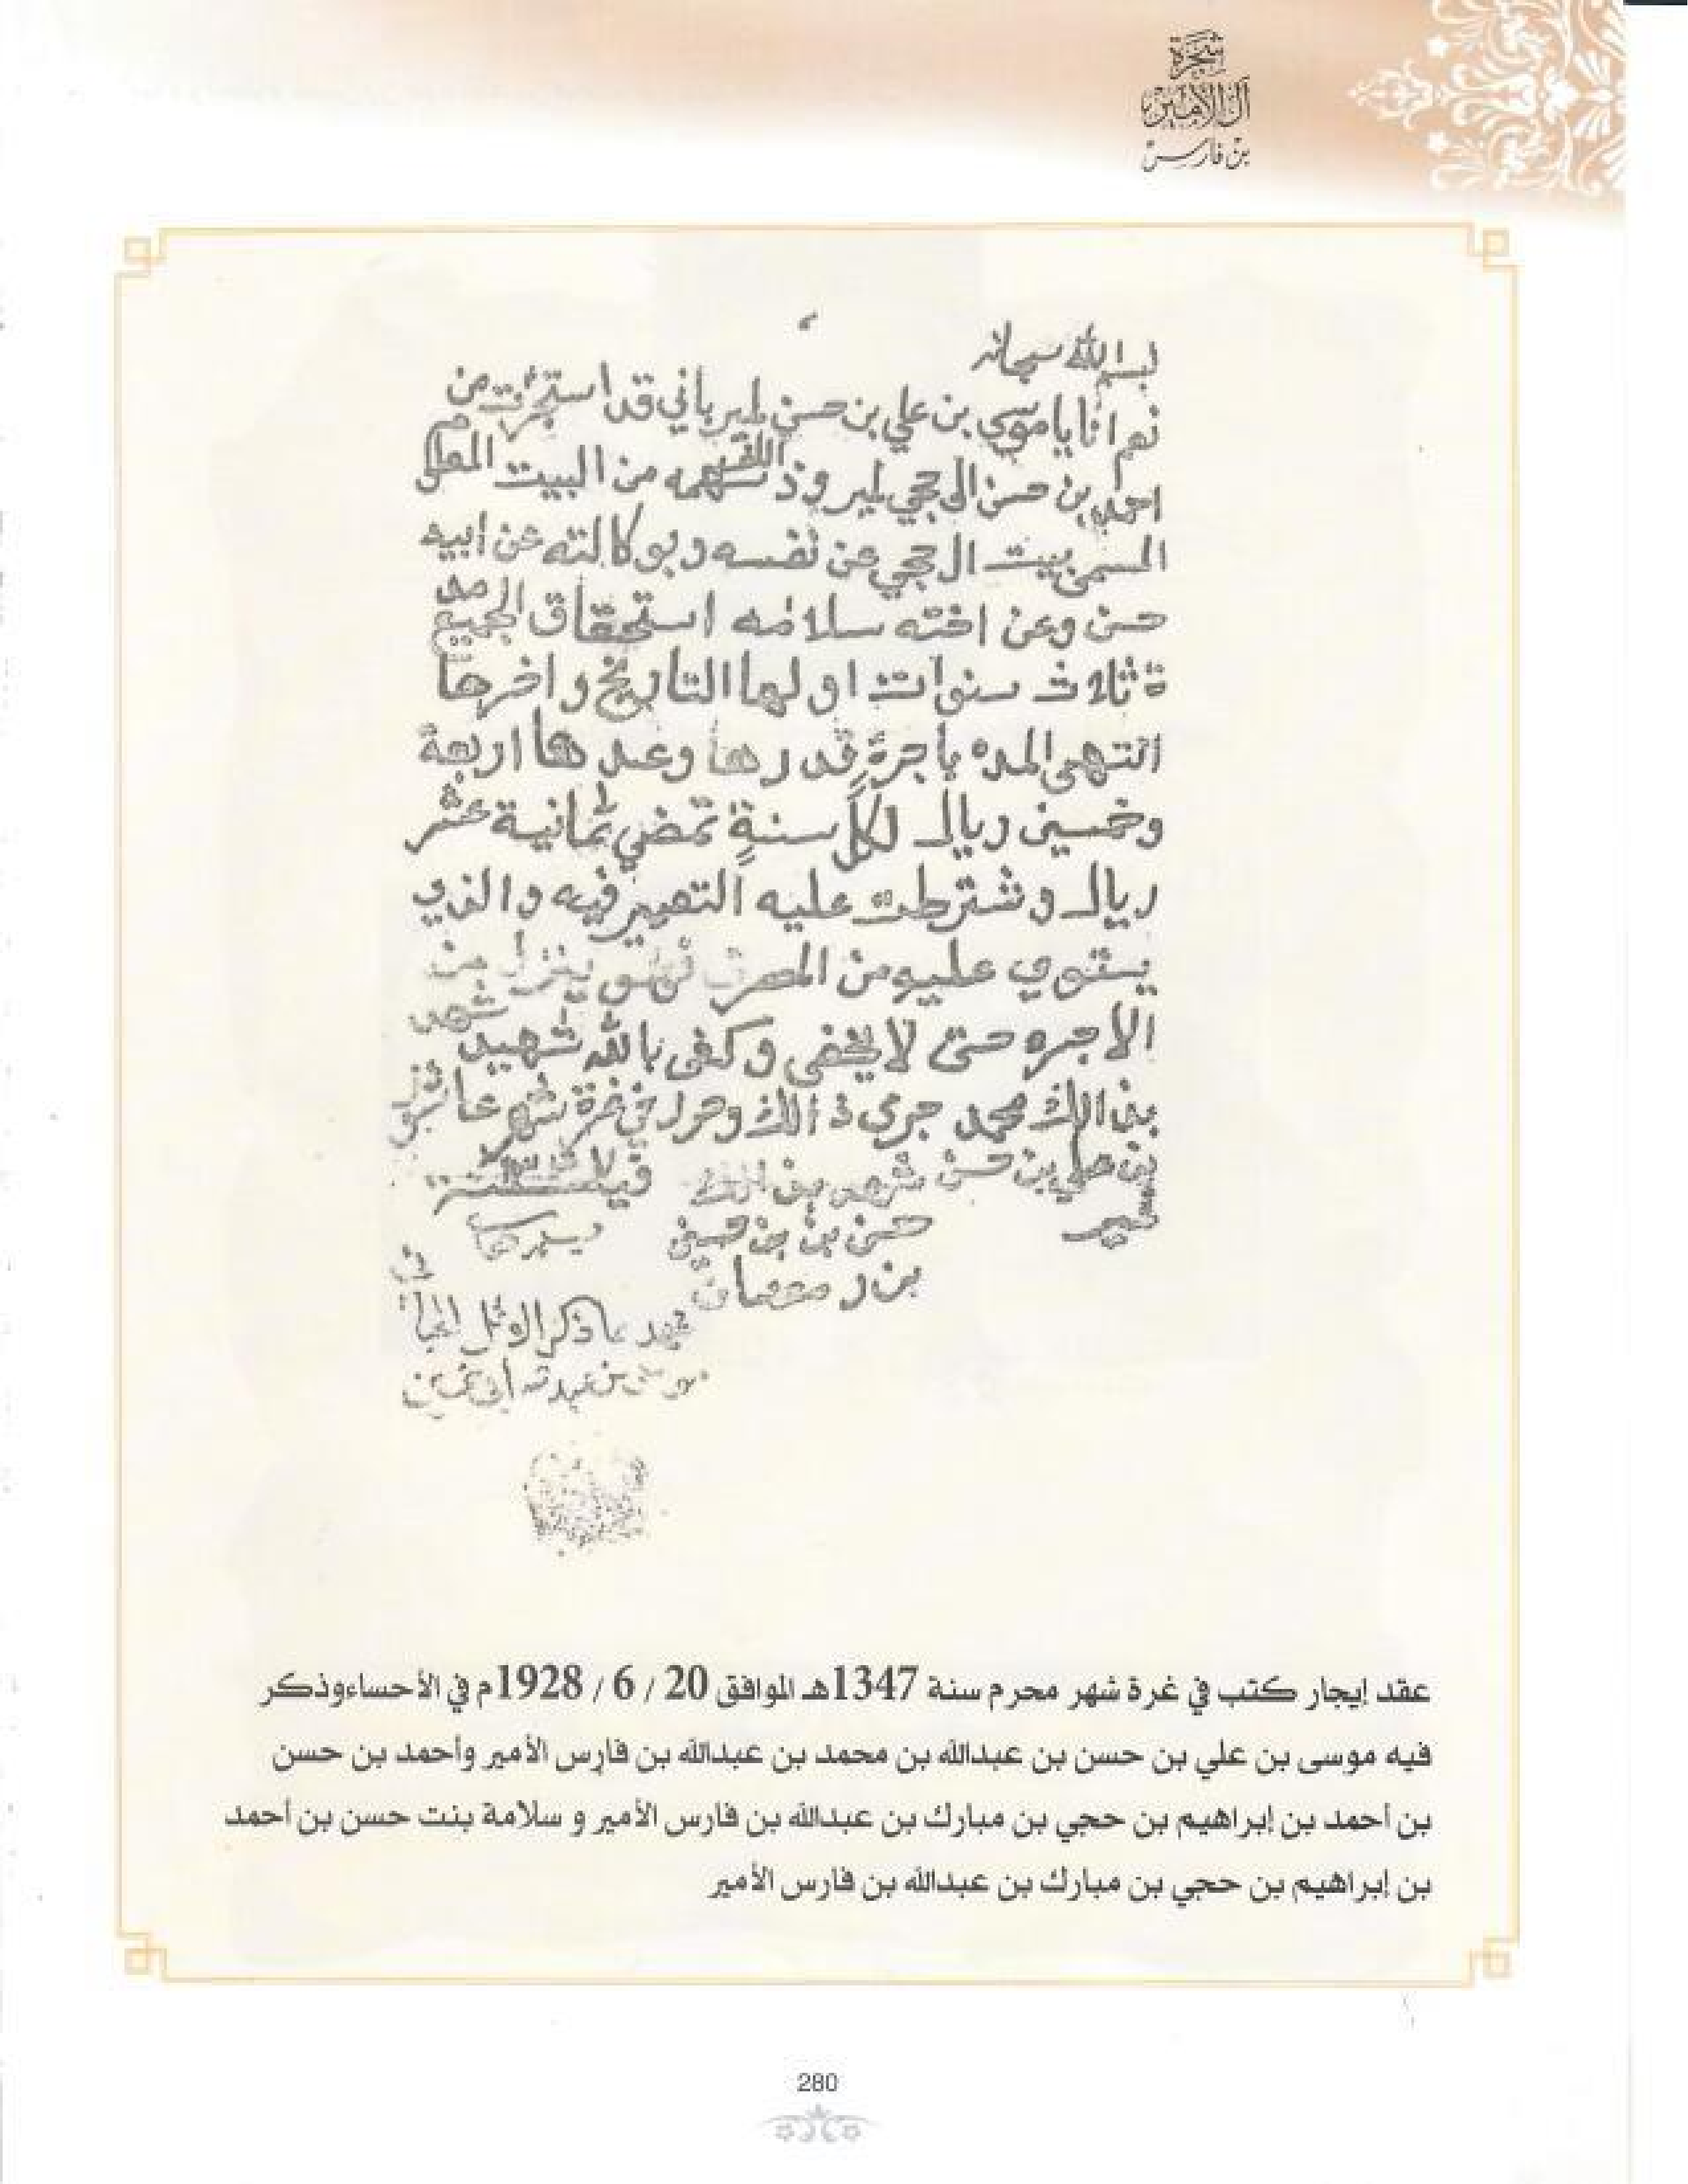 شجرة
آل الأمير
بن فارس
بسم الله سبحانه
نعم انا يا موسى بن علي بن حسن لمير باني قد استجرت من
احمد بن حسن الحجي لمير وذالك سهمه من البيت المعلوم
المسمى ببيت الحجي عن نفسه وبوكالته عن ابيه
حسن وعن اخته سلامه استحقاق الجميع مد
ة ثلاث سنوات اولها التاريخ واخرها
انتهى المده باجرة قدرها وعددها اربعة
وخمسين ريال لكل سنةٍ تمضي ثمانية عشر
ريال وشترطت عليه التعمير فيه والذي
يستوي عليه من المصرف فهو ينزل من
الاجره حتى لا يخفى وكفى بالله شهيد شهد
بذالك محمد جرى ذالك وحرر في غرة شهر عاشور
بن علي بن حسن شهد بذالك
لمير
حسن بن حسين
بن رمضان
شهد بما ذكر
عقد إيجار كتب في غرة شهر محرم سنة 1347هـ الموافق 20 / 6 / 1928م في الأحساء وذكر
فيه موسى بن علي بن حسن بن عبدالله بن محمد بن عبدالله بن فارس الأمير وأحمد بن حسن
بن أحمد بن إبراهيم بن حجي بن مبارك بن عبدالله بن فارس الأمير و سلامة بنت حسن بن أحمد
بن إبراهيم بن حجي بن مبارك بن عبدالله بن فارس الأمير
280